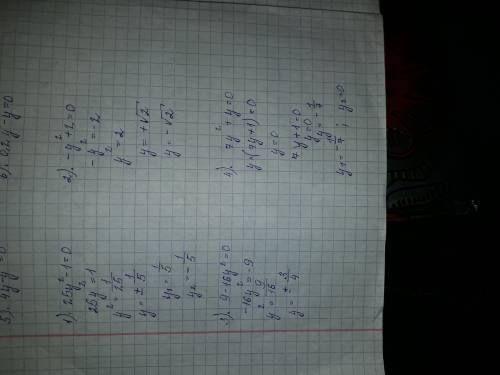 5). 4y - y² = 0
6). 0,2y² - y = 0
1). 25y² - 1 = 0
25y² = 1
y² = 1/25
y = ± 1/5
y₁ = 1/5
y₂ = - 1/5
2). -y² + 2 = 0
-y² = -2
y² = 2
y = +√2
y = -√2
3). 9 - 16y² = 0
-16y² = -9
y² = 9/16
y = ± 3/4
4). 7y² + y = 0
y(7y + 1) = 0
y = 0
7y + 1 = 0
y = 0
y = - 1/7
y₁ = - 1/7 ; y₂ = 0